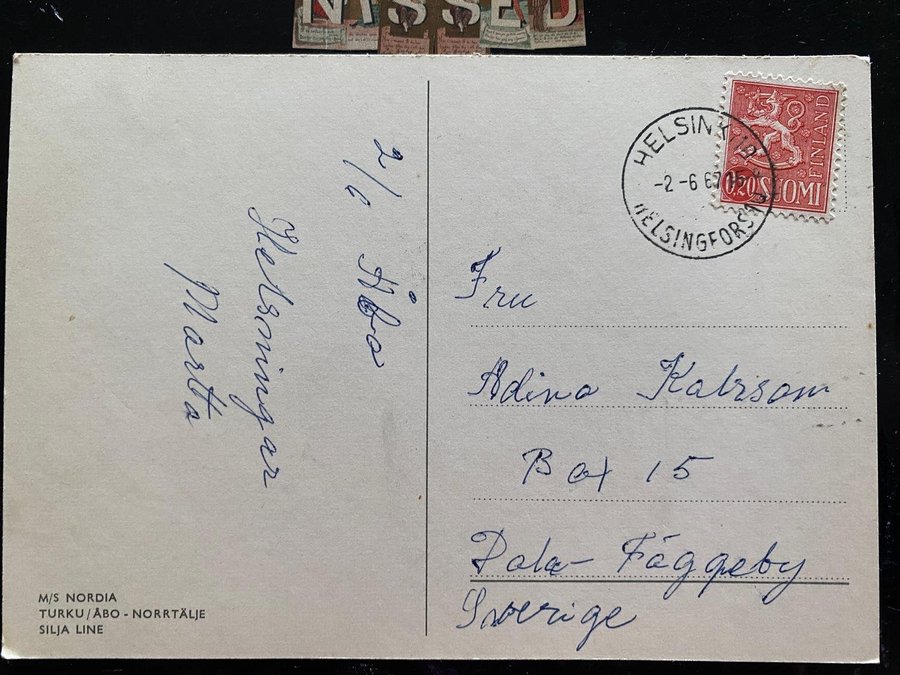 NISSED
2/6 Åbo
Helsningar
Martta
M/S NORDIA
TURKU/ÅBO - NORRTÄLJE
SILJA LINE
HELSINKI
-2-6 67
HELSINGFORS
0,20 SUOMI
FINLAND
Fru
Adina Kalrsom
Box 15
Dala-Fäggeby
Sverige